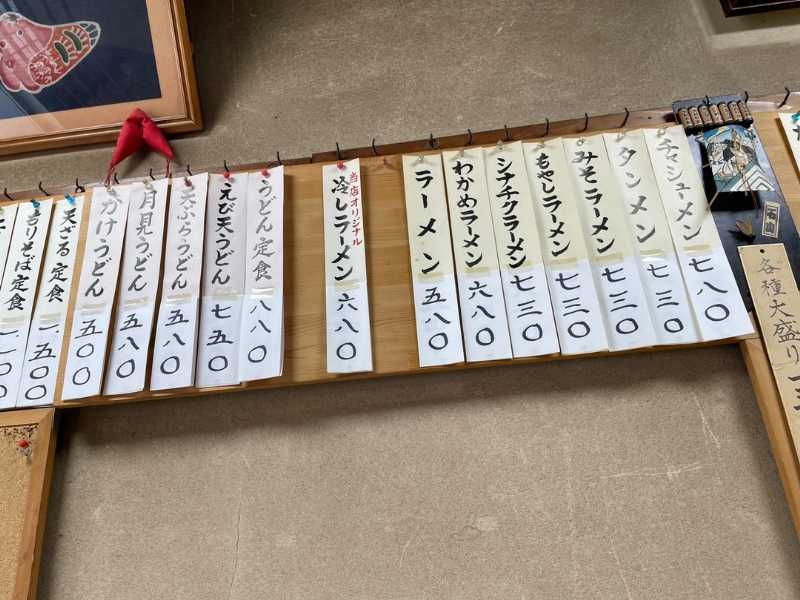 もりそば 定食
天ざる 定食 一、五〇〇
かけうどん 五〇〇
月見うどん 五八〇
天ぷらうどん 五八〇
えび天うどん 七五〇
うどん定食 八八〇
当店オリジナル
冷しラーメン 六八〇
ラーメン 五八〇
わかめラーメン 六八〇
シナチクラーメン 七三〇
もやしラーメン 七三〇
みそラーメン 七三〇
タンメン 七三〇
チャシューメン 七八〇
各種大盛り